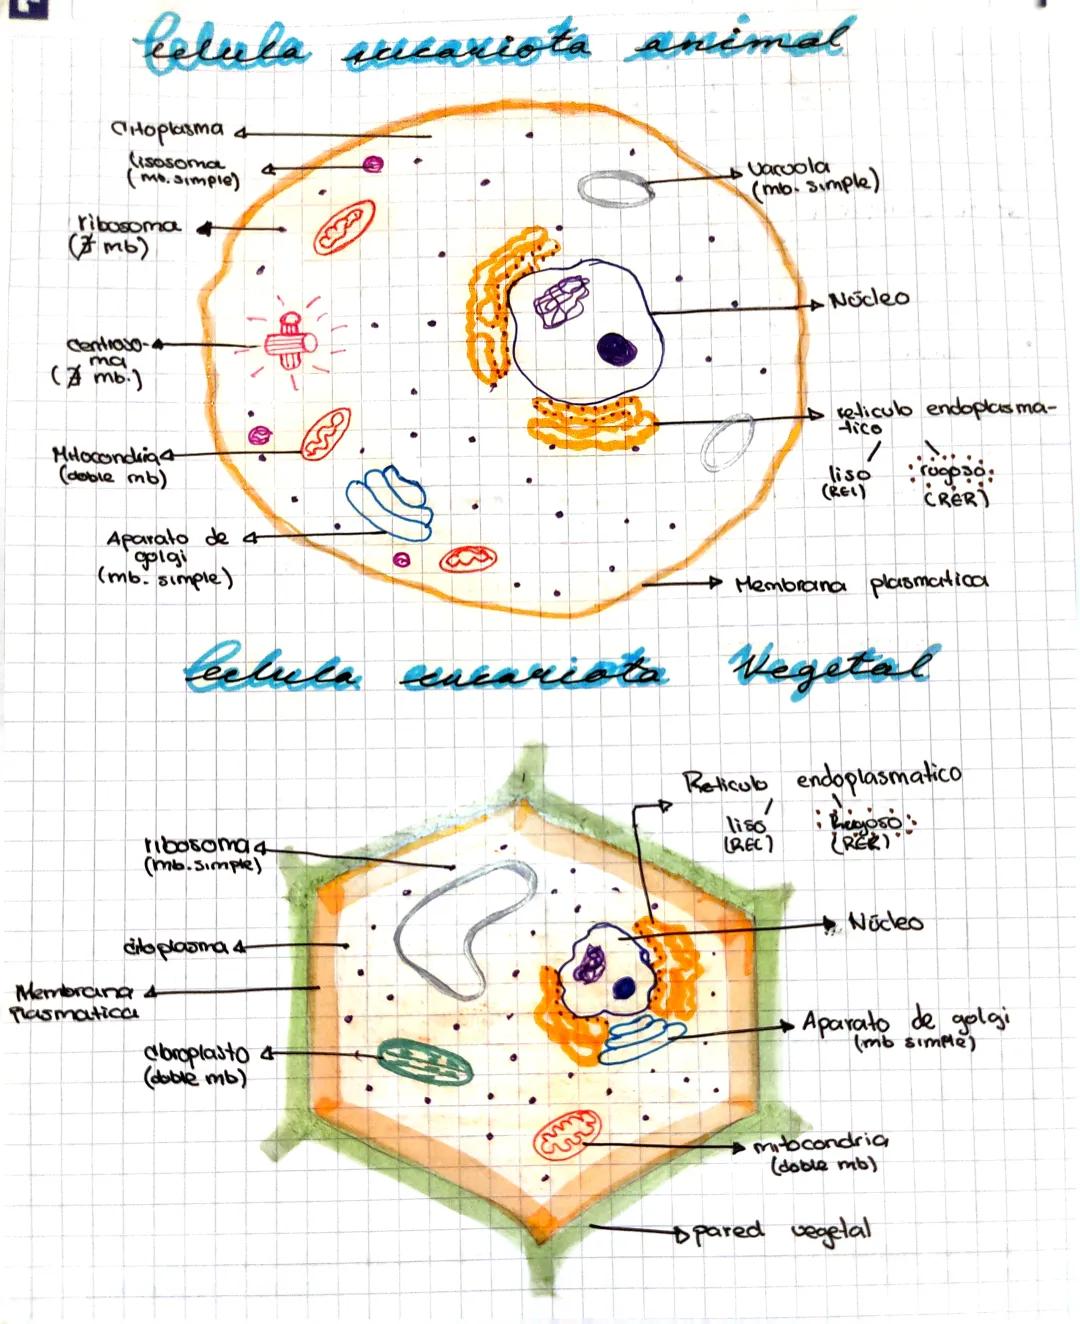 Celula eucariota animal
Citoplasma
lisosoma
(mb. simple)
Vacuola
(mb. simple)
ribosoma
(∄ mb)
Núcleo
centroso-
ma
(∄ mb.)
reticulo endoplasma-
tico
liso
(REL)
rugoso
(RER)
Mitocondria
(doble mb)
Aparato de
golgi
(mb. simple)
Membrana plasmatica
Celula eucariota Vegetal
Reticulo endoplasmatico
liso
(REL)
Rugoso
(RER)
ribosoma
(mb. simple)
Núcleo
citoplasma
Membrana
plasmatica
Aparato de golgi
(mb simple)
cloroplasto
(doble mb)
mitocondria
(doble mb)
pared vegetal